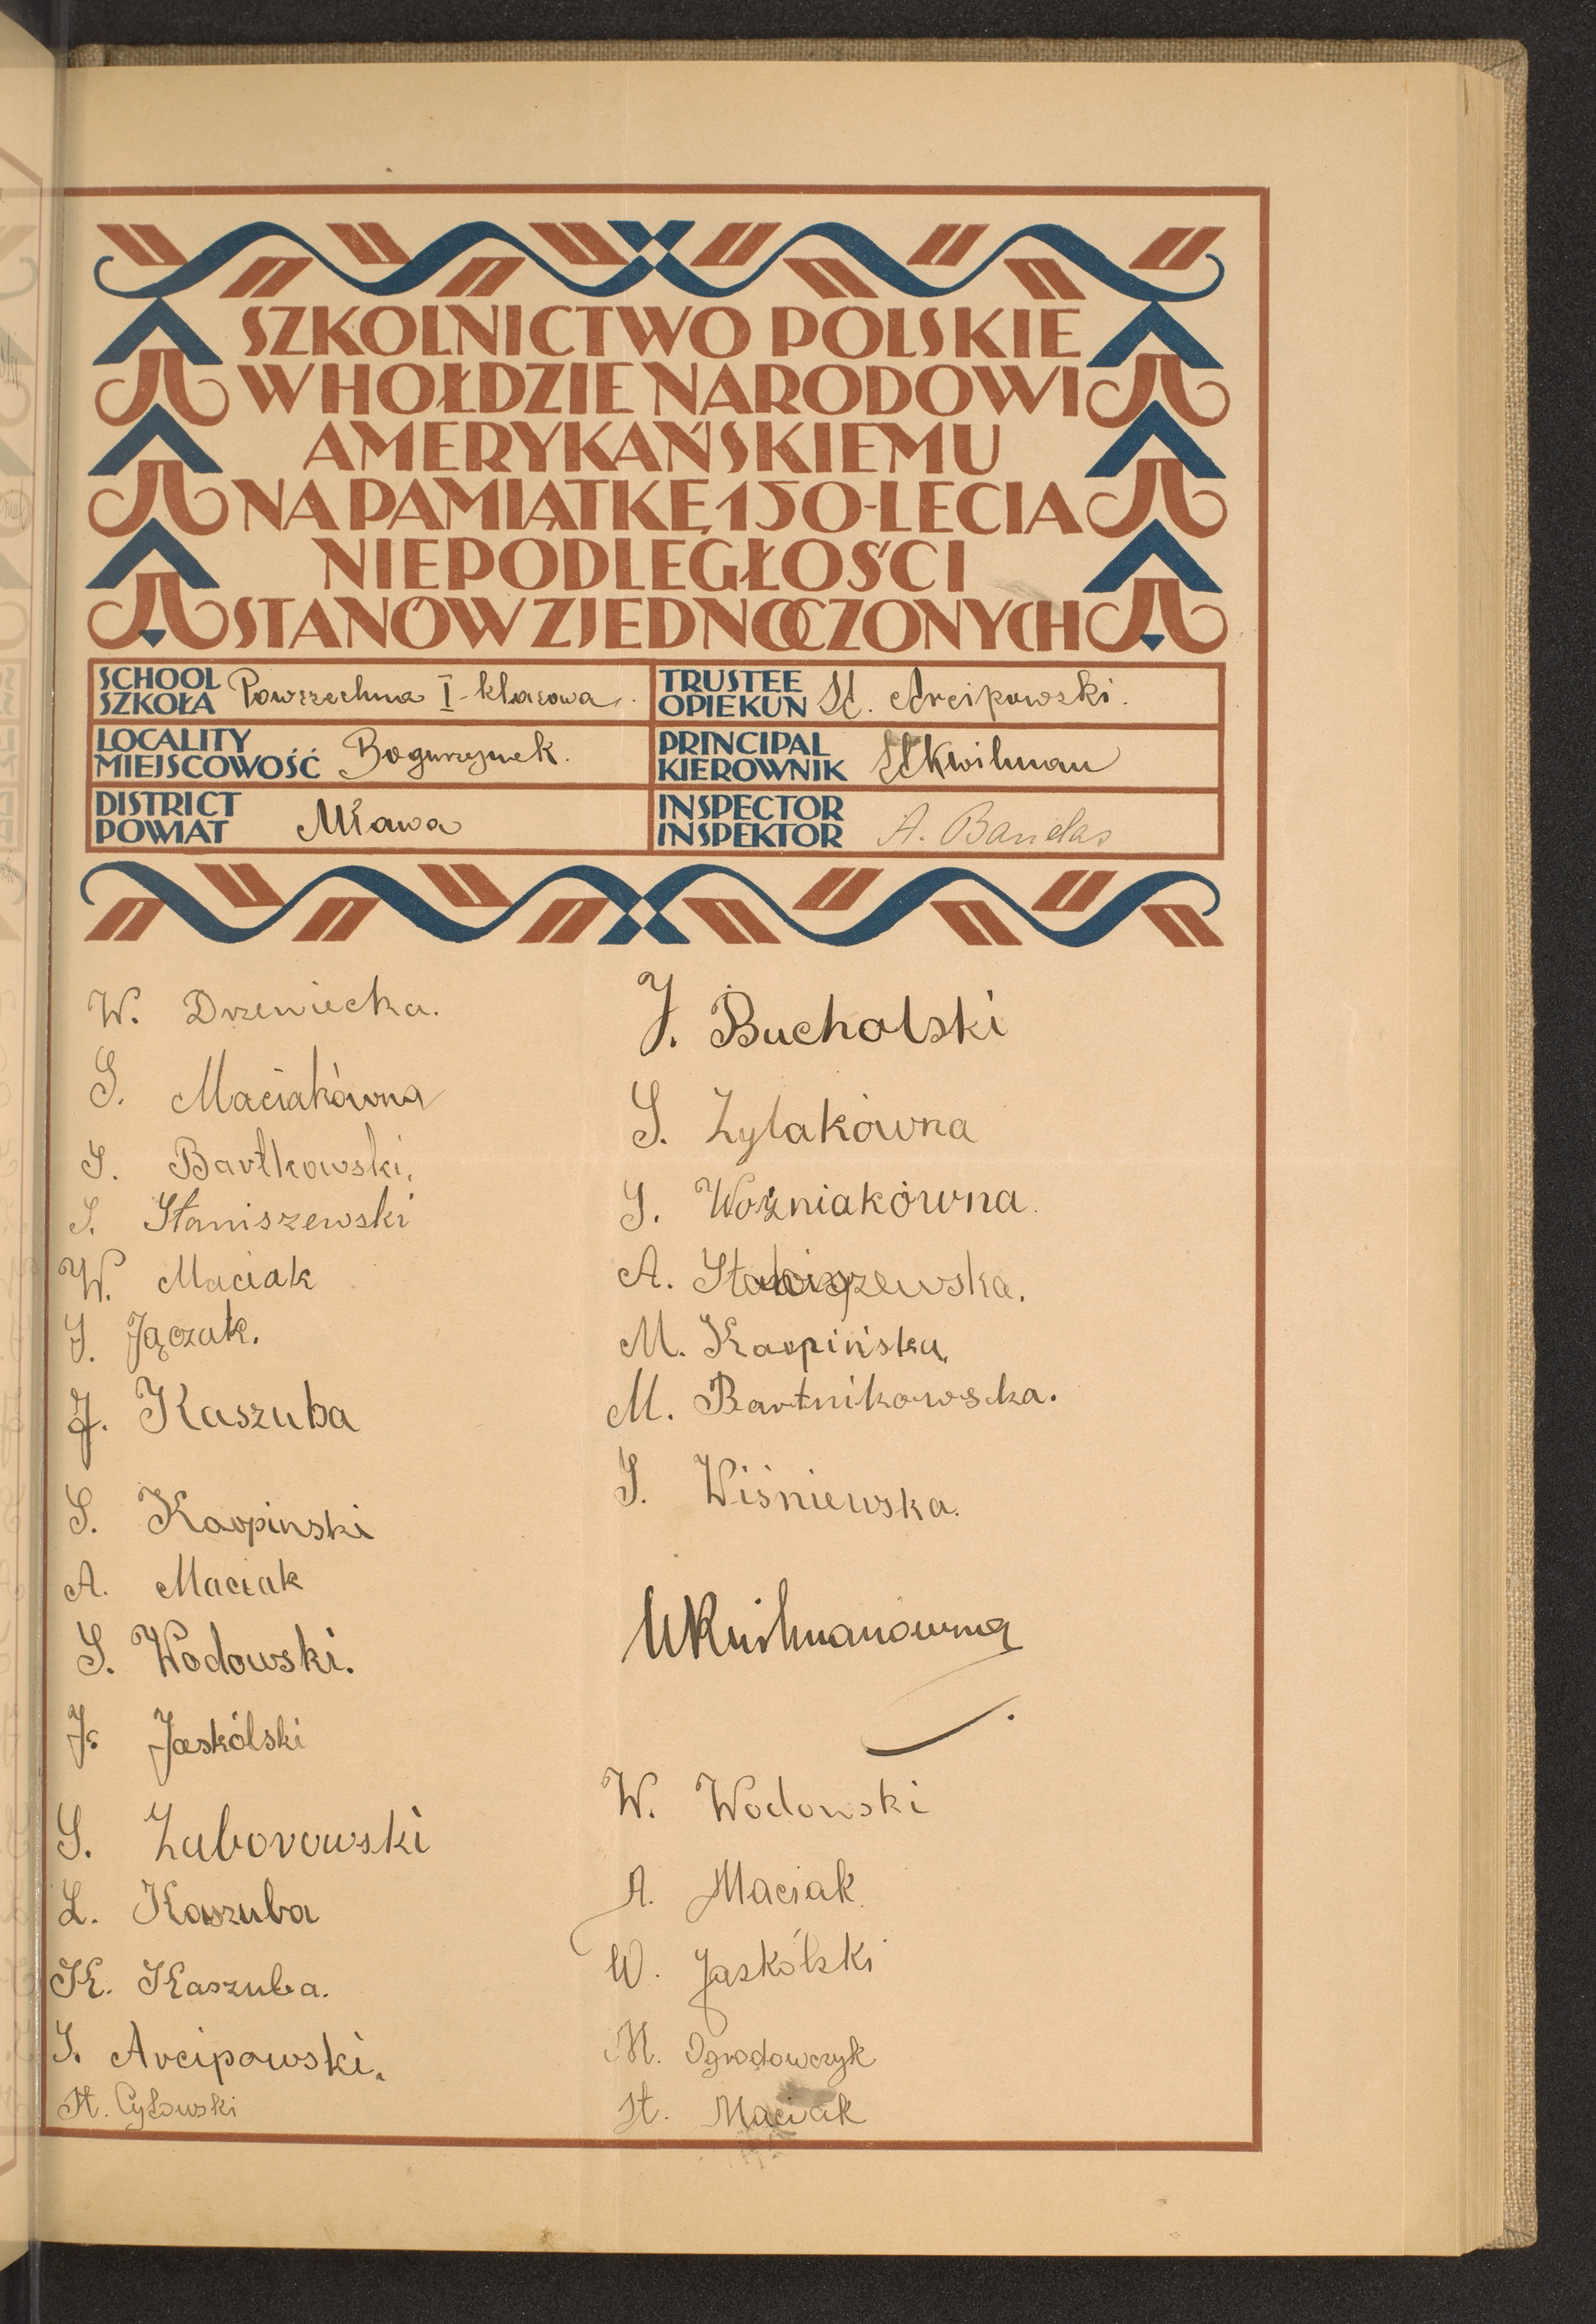 SZKOLNICTWO POLSKIE
W HOŁDZIE NARODOWI
AMERYKAŃSKIEMU
NA PAMIĄTKĘ 150-LECIA
NIEPODLEGŁOŚCI
STANÓW ZJEDNOCZONYCH
SCHOOL
SZKOŁA Powszechna I-klasowa.
TRUSTEE
OPIEKUN St. Arcipowski.
LOCALITY
MIEJSCOWOŚĆ Bogurzynek.
PRINCIPAL
KIEROWNIK StKwilman
DISTRICT
POWIAT Mława
INSPECTOR
INSPEKTOR A.
W. Drzewiecka.
S. Maciakówna
S. Bartkowski.
S. Staniszewski
W. Maciak
J. Jączak.
J. Kaszuba
S. Karpinski
A. Maciak
S. Wodowski.
J. Jaskólski
S. Zaborowski
L. Kaszuba
K. Kaszuba.
S. Arcipowski.
St. Cyłowski
J. Bucholski
S. Zylakówna
J. Woźniakówna.
A. Staniszewska.
M. Karpińska,
M. Bartnikowska.
J. Wiśniewska.
W. Wodowski
A. Maciak
W. Jaskólski
M. Ogrodowczyk
St. Maciak